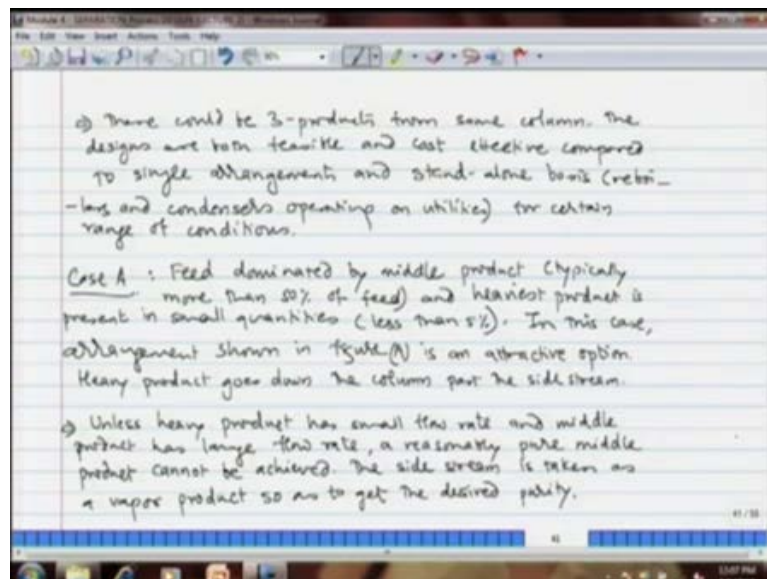 Module 4 - SEPARATION Process DESIGN LECTURE 2 - Windows Journal
File Edit View Insert Actions Tools Help
⇒ There could be 3-products from same column. The
designs are both feasible and cost effective compared
to single arrangements and stand-alone basis (reboi-
-lers and condensers operating on utilities) for certain
range of conditions.
Case A : Feed dominated by middle product (typically
more than 50% of feed) and heaviest product is
present in small quantities (less than 5%). In this case,
arrangement shown in figure (A) is an attractive option.
Heavy product goes down the column past the side stream.
⇒ Unless heavy product has small flow rate and middle
product has large flow rate, a reasonably pure middle
product cannot be achieved. The side stream is taken as
a vapor product so as to get the desired purity.
41